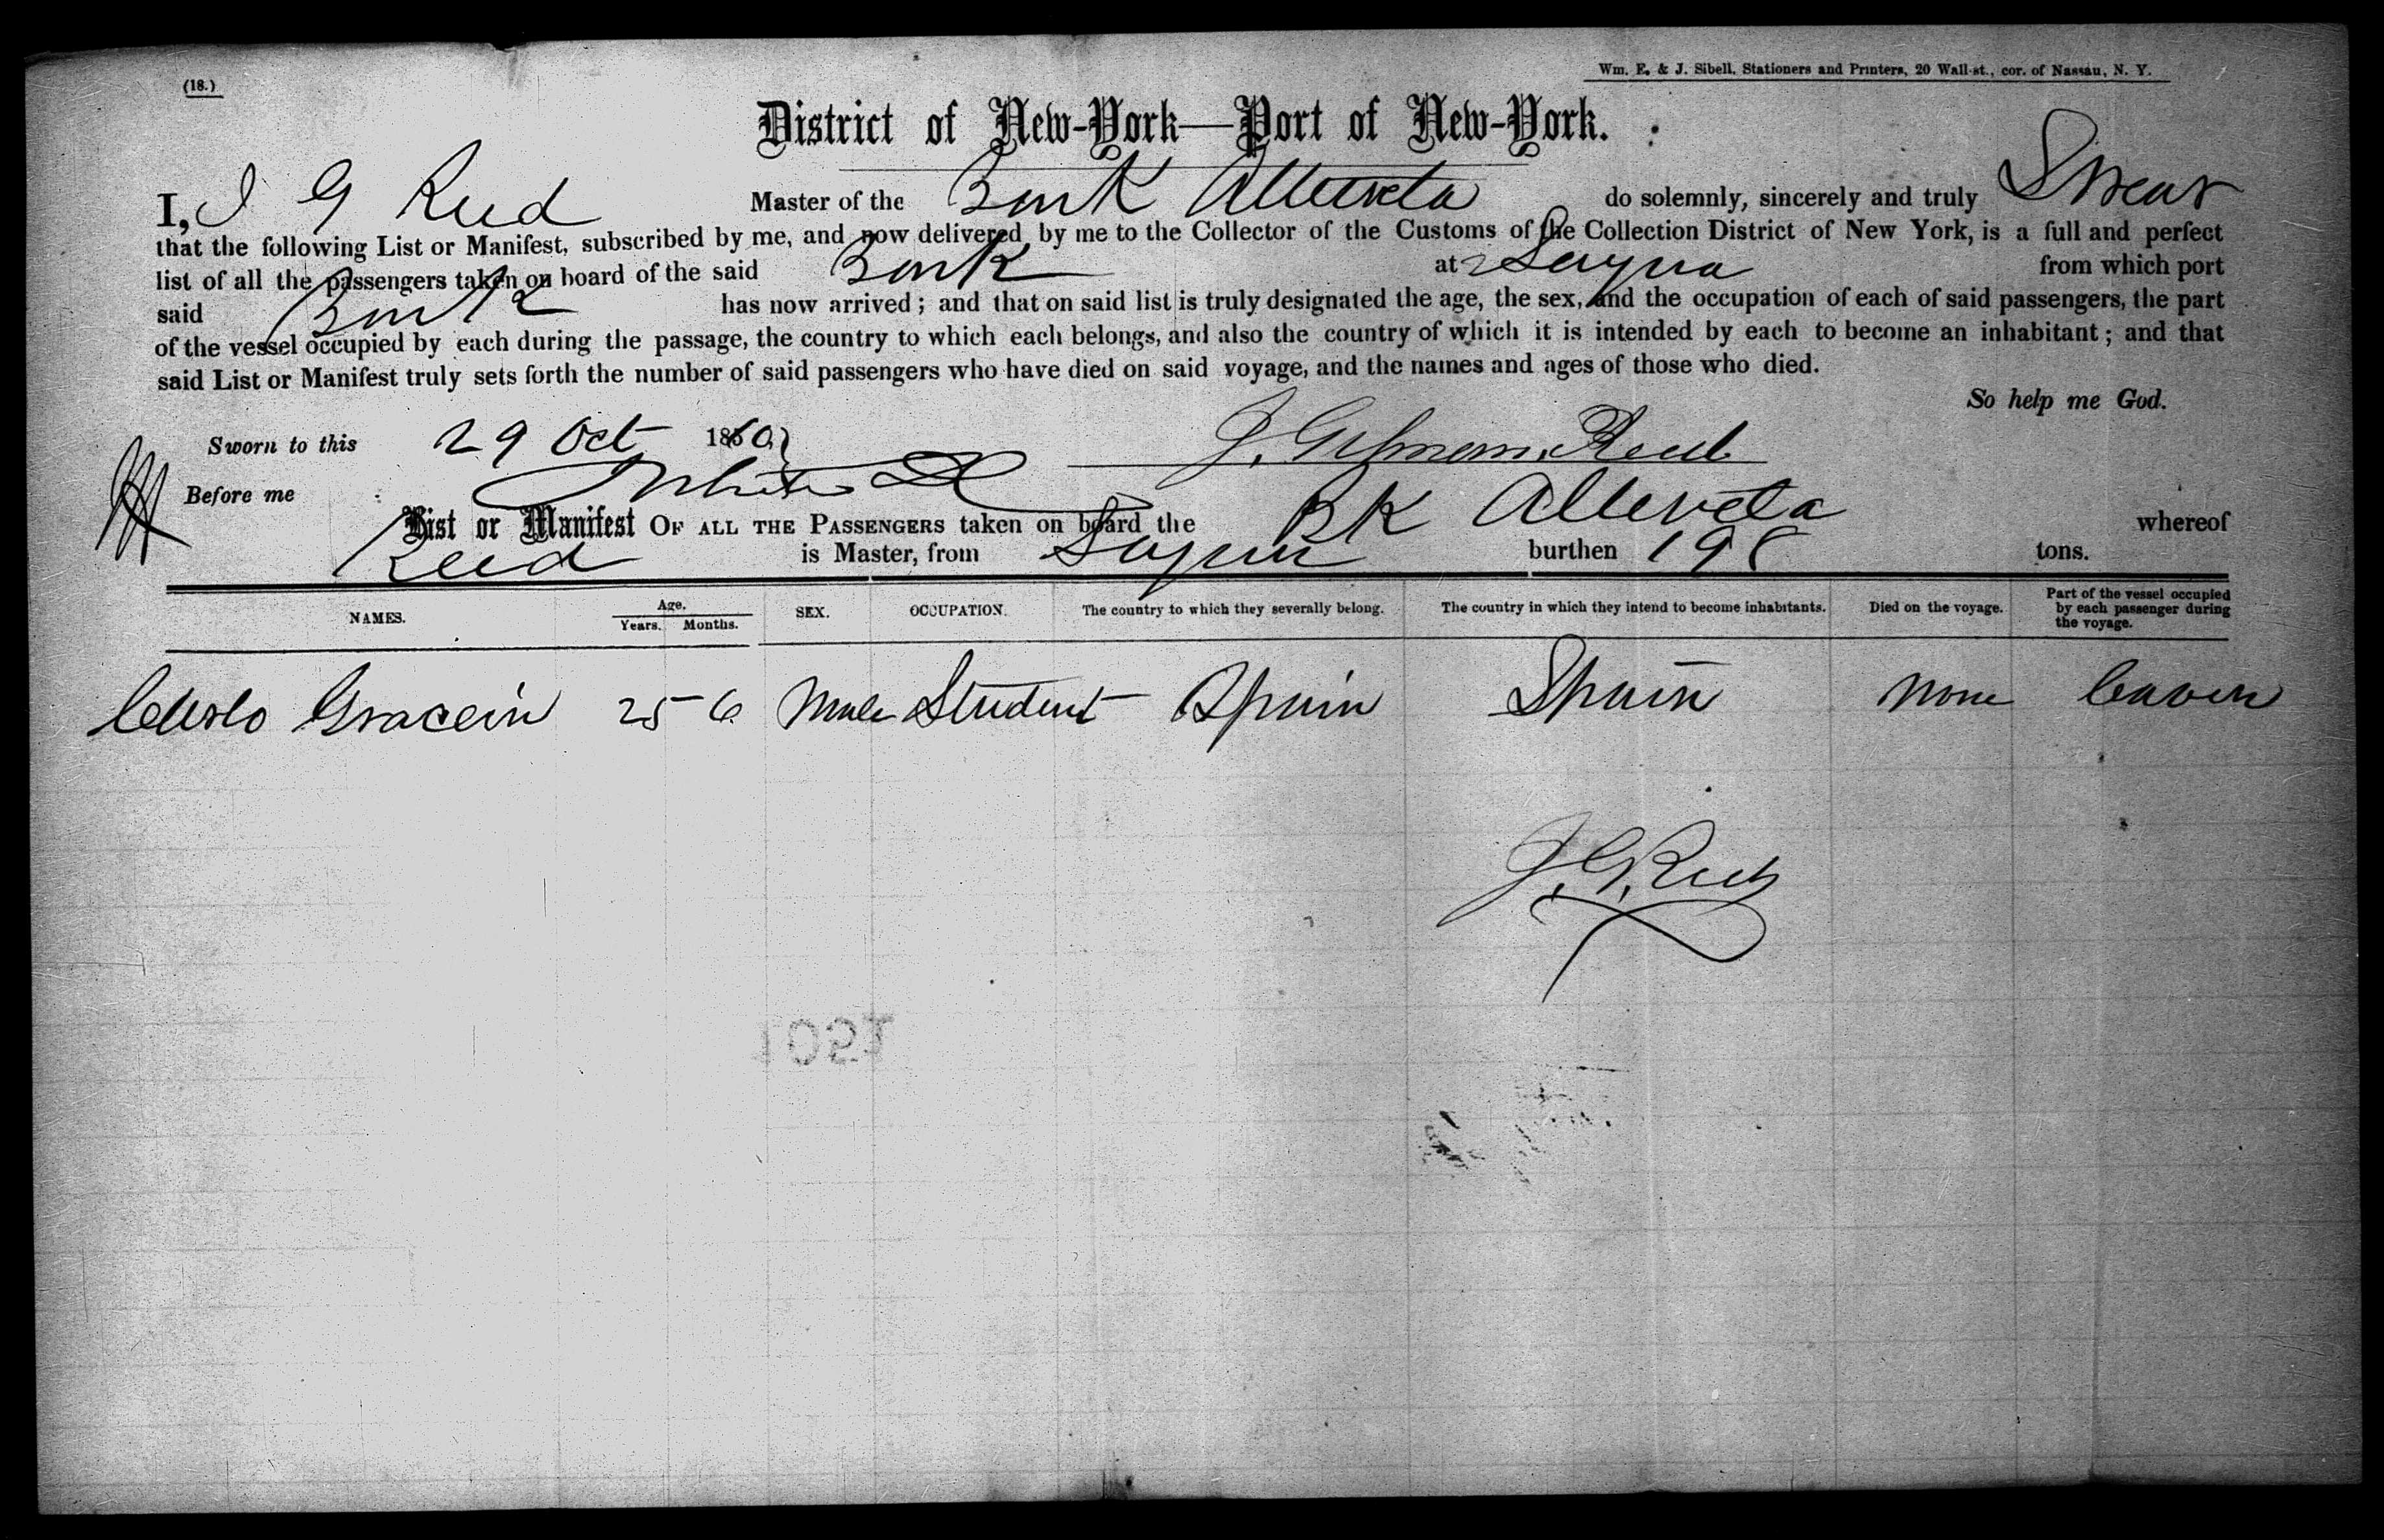 (18.)
Wm. E. & J. Sibell, Stationers and Printers, 20 Wall-st., cor. of Nassau, N. Y.
District of New-York—Port of New-York.
I, J G Reed Master of the Bark do solemnly, sincerely and truly Swear
that the following List or Manifest, subscribed by me, and now delivered by me to the Collector of the Customs of the Collection District of New York, is a full and perfect
list of all the passengers taken on board of the said Bark at Sagua from which port
said Bark has now arrived; and that on said list is truly designated the age, the sex, and the occupation of each of said passengers, the part
of the vessel occupied by each during the passage, the country to which each belongs, and also the country of which it is intended by each to become an inhabitant; and that
said List or Manifest truly sets forth the number of said passengers who have died on said voyage, and the names and ages of those who died.
So help me God.
Sworn to this 29 Oct 1860 J. Gilman Reed
Before me
List or Manifest OF ALL THE PASSENGERS taken on board the Bk whereof
Reed is Master, from Sagua burthen 198 tons.
NAMES. Age. Years. Months. SEX. OCCUPATION. The country to which they severally belong. The country in which they intend to become inhabitants. Died on the voyage. Part of the vessel occupied by each passenger during the voyage.
25 6 Male Student Spain Spain None Caben
J. G. Reed
1051